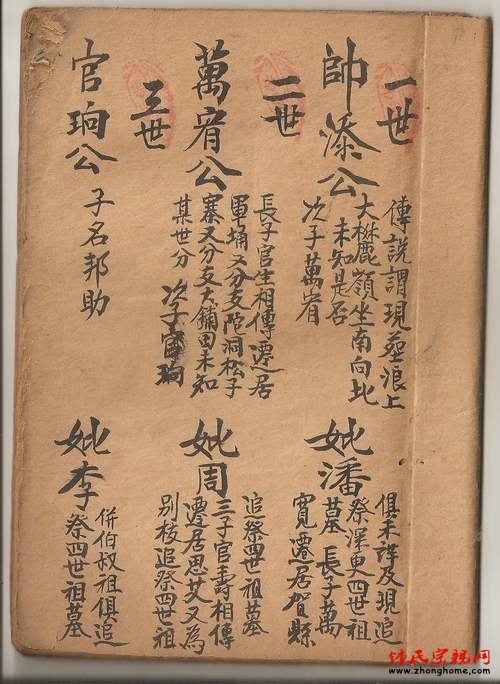 一世
帥添公
傳說謂現葬浪上
大嶺坐南向北
未知是否
次子萬宥
妣潘
俱未詳及現追
祭深更四世祖
墓 長子萬
寬遷居賀縣
二世
萬宥公
長子官生相傳遷居
軍埇又分支陀洞松子
寨又分支大鋪田未知
某世分 次子官珦
妣周
追祭四世祖墓
三子官壽相傳
遷居思艾又為
別枝追祭四世祖
三世
官珦公
子名邦助
妣李
併伯叔祖俱追
祭四世祖墓
钟氏宗親网
www.zhonghome.com